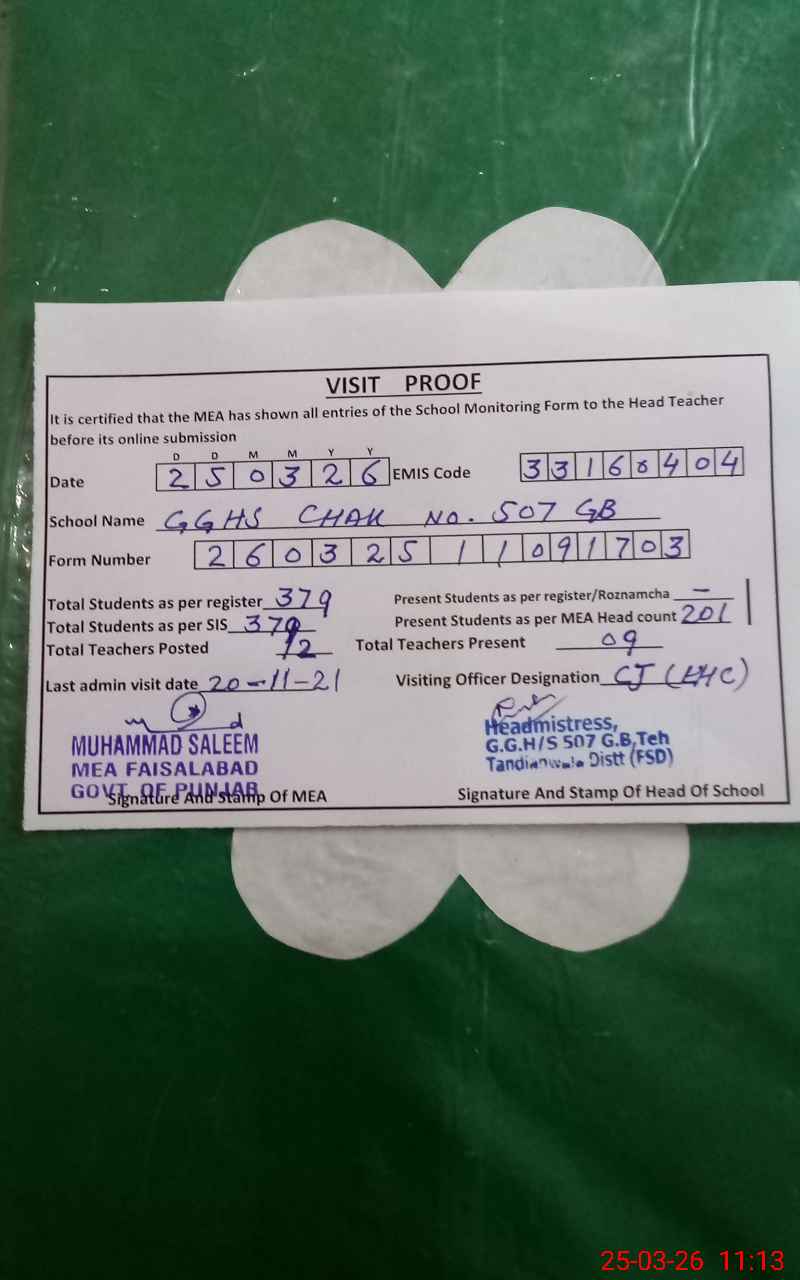 VISIT PROOF
It is certified that the MEA has shown all entries of the School Monitoring Form to the Head Teacher
before its online submission
D D M M Y Y
Date 2 5 0 3 2 6 EMIS Code 3 3 1 6 0 4 0 4
School Name GGHS CHAK NO. 507 GB
Form Number 2 6 0 3 2 5 1 1 0 9 1 7 0 3
Total Students as per register 379 Present Students as per register/Roznamcha —
Total Students as per SIS 379 Present Students as per MEA Head count 201
Total Teachers Posted 12 Total Teachers Present 09
Last admin visit date 20-11-21 Visiting Officer Designation CJ (LHC)
MUHAMMAD SALEEM
MEA FAISALABAD
GOVT. OF PUNJAB
Signature And Stamp Of MEA
Headmistress,
G.G.H/S 507 G.B,Teh
Tandianwala Distt (FSD)
Signature And Stamp Of Head Of School
25-03-26 11:13